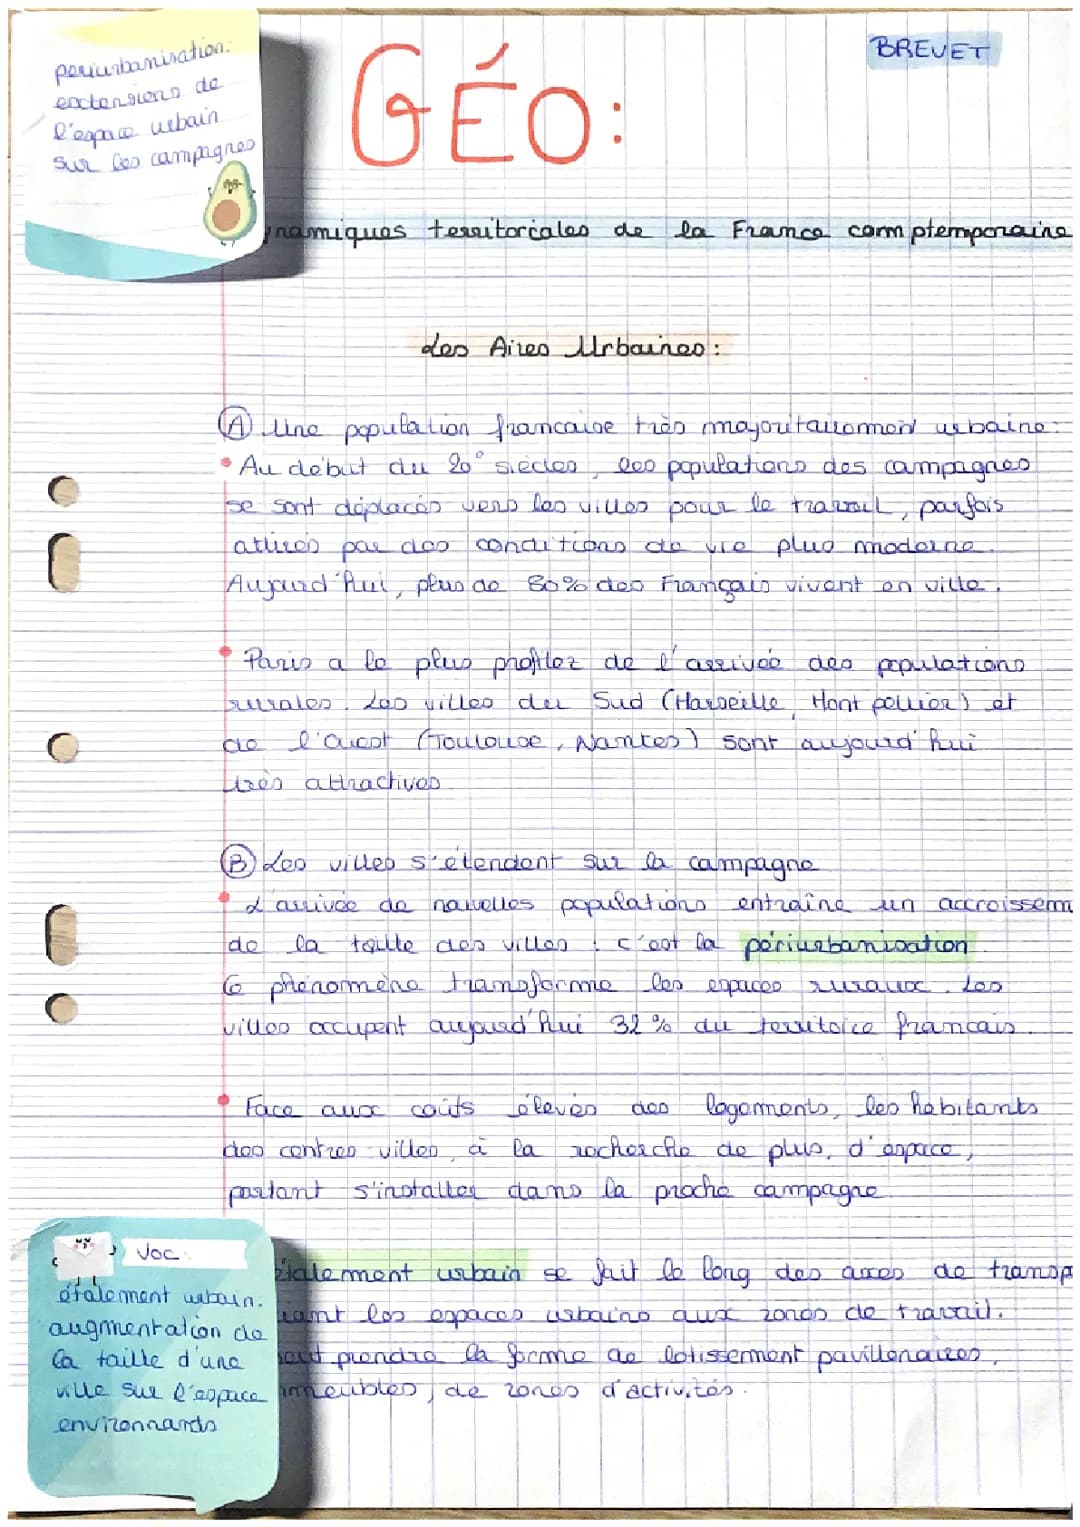 périurbanisation:
exctensions de
l'espace urbain
sur les campagnes
GÉO:
BREVET
ynamiques territoriales de la France comptemporaine
Les Aires Urbaines:
A Une population francaise très majoritairement urbaine:
• Au début du 20° siècles, les populations des campagnes
se sont déplacés vers les villes pour le travail, parfois
attirés par des conditions de vie plus moderne.
Aujourd'hui, plus de 80% des Français vivent en ville.
• Paris a le plus profitez de l'arrivée des populations
rurales. Les villes du Sud (Marseille, Montpellier) et
de l'ouest (Toulouse, Nantes) sont aujourd'hui
très attractives.
B Les villes s'étendent sur la campagne
• L'arrivée de nouvelles populations entraîne un accroissem
de la taille des villes : c'est la périurbanisation.
Ce phénomène transforme les espaces ruraux. Les
villes occupent aujourd'hui 32% du territoire francais.
• Face aux coûts élevés des logements, les habitants
des centres-villes, à la recherche de plus, d'espace,
partent s'installer dans la proche campagne.
étalement urbain se fait le long des axes de transp
iant les espaces urbains aux zones de travail.
peut prendre la forme de lotissement pavillonaires,
immeubles, de zones d'activités.
Voc:
étalement urbain.
augmentation de
la taille d'une
ville sur l'espace
environnards